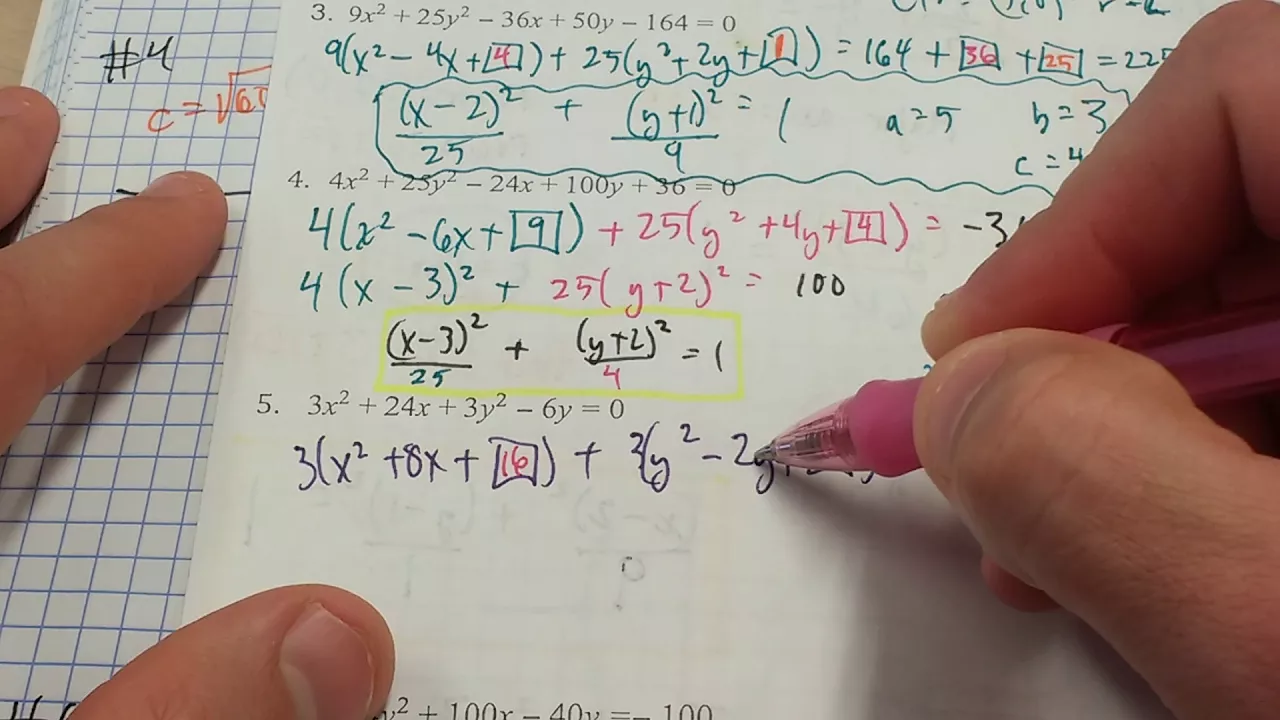 3. 9x² + 25y² − 36x + 50y − 164 = 0
#4
9(x² − 4x + 4) + 25(y² + 2y + 1) = 164 + 36 + 25 = 225
c = √
(x − 2)²/25 + (y + 1)²/9 = 1 a = 5 b = 3
c = 4
4. 4x² + 25y² − 24x + 100y + 36 = 0
4(x² − 6x + 9) + 25(y² + 4y + 4) = −3
4(x − 3)² + 25(y + 2)² = 100
(x − 3)²/25 + (y + 2)²/4 = 1
5. 3x² + 24x + 3y² − 6y = 0
3(x² + 8x + 16) + 3(y² − 2y
y² + 100x − 40y = − 100